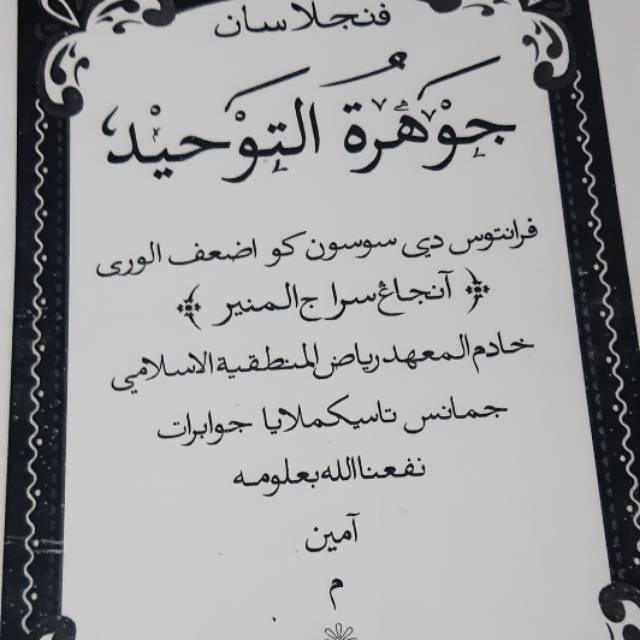 فنجلاسان
جَوْهَرَةُ التَّوْحِيْدِ
فرانتوس دي سوسون كو اضعف الورى
﴿ آنجاڠ سراج المنير ﴾
خادم المعهد رياض المنطقية الاسلامي
جمانس تاسيكملايا جوابرات
نفعنا الله بعلومه
آمين
م